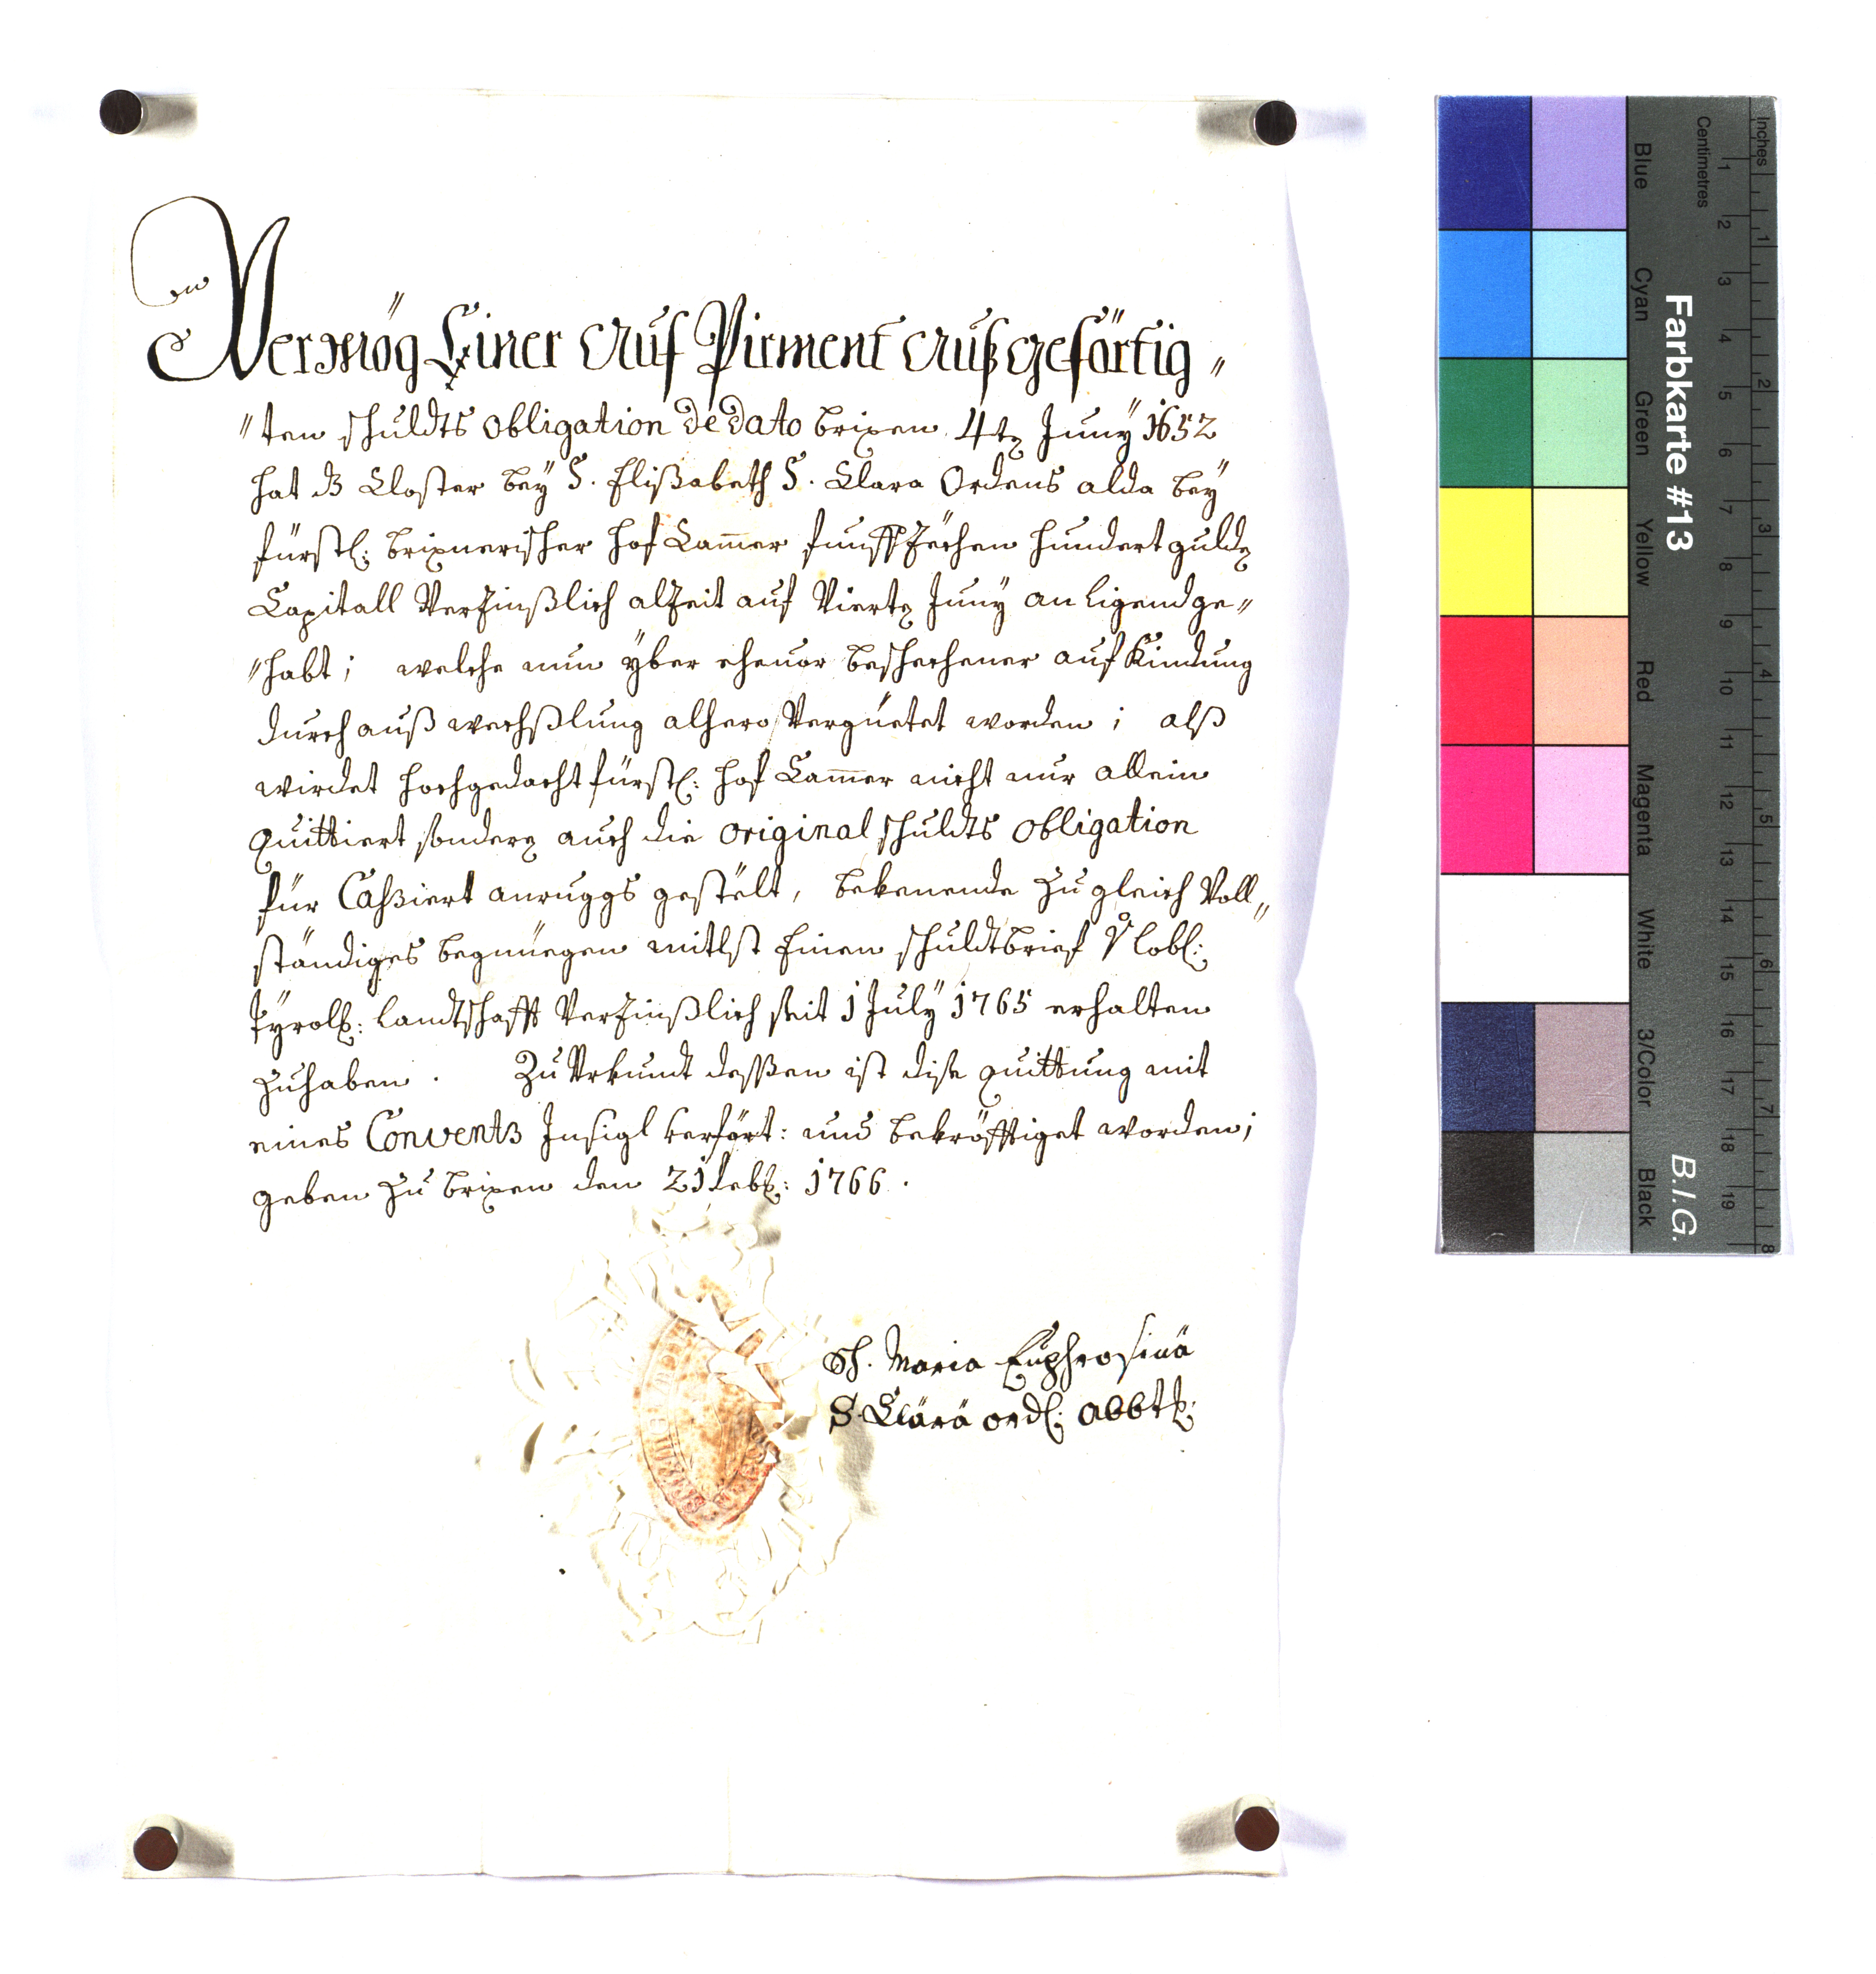 Vermög Einer Auf Pirment Außgeförtig〃
〃ten schuldts obligation de dato brixen 4tn Juny 1652
hat dz Closter beÿ S. Elißabeth S. Clara Ordens alda beÿ
fürstl: brixnerischer hof Cam̄er funffzechen hundert guldn
Capitall Verzinßlich alzeit auf Viertn Juny an ligend ge〃
〃habt; welche nun ÿber ehevor beschechener aufkindung
durch außwechßlung alhero Vergüetet worden; alß
wirdet hochgedacht fürstl: hof Cam̄er nicht nur allein
quittiert sondern auch die original schuldts obligation
für Caßiert anruggs gestelt, bekenende zu gleich Voll〃
ständiges begnüegen mitlst Einen schuldtbrief lobl:
Tyroll: landtschafft Verzinßlich seit 1 July 1765 erhalten
zuhaben. Zu Vrkundt dessen ist dise quittung mit
eines Convents Insigl verfört: und bekröfftiget worden;
geben zu brixen den 21 Feb: 1766.
Sch. Maria Euphrosina
S. Clara ord: abbt:
Farbkarte #13
B.I.G.
Inches 1 2 3 4 5 6 7 8
Centimetres 1 2 3 4 5 6 7 8 9 10 11 12 13 14 15 16 17 18 19
Blue
Cyan
Green
Yellow
Red
Magenta
White
3/Color
Black